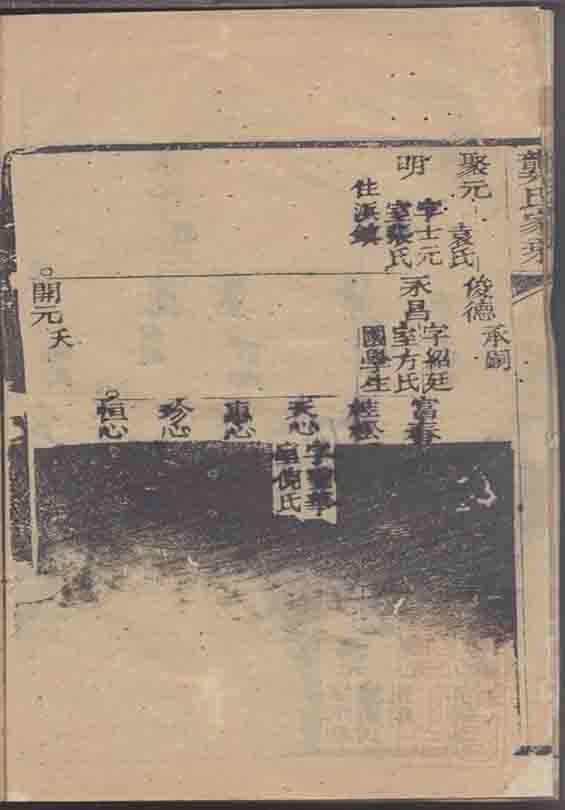 龔氏家乘
聚元 袁氏
俊德 承嗣
明 字士元
室張氏
住浜鎮
永昌 字紹廷
室方氏
國學生
富春
桂松
天心
室倪氏
惠心
珍心
恒心
開元 夭